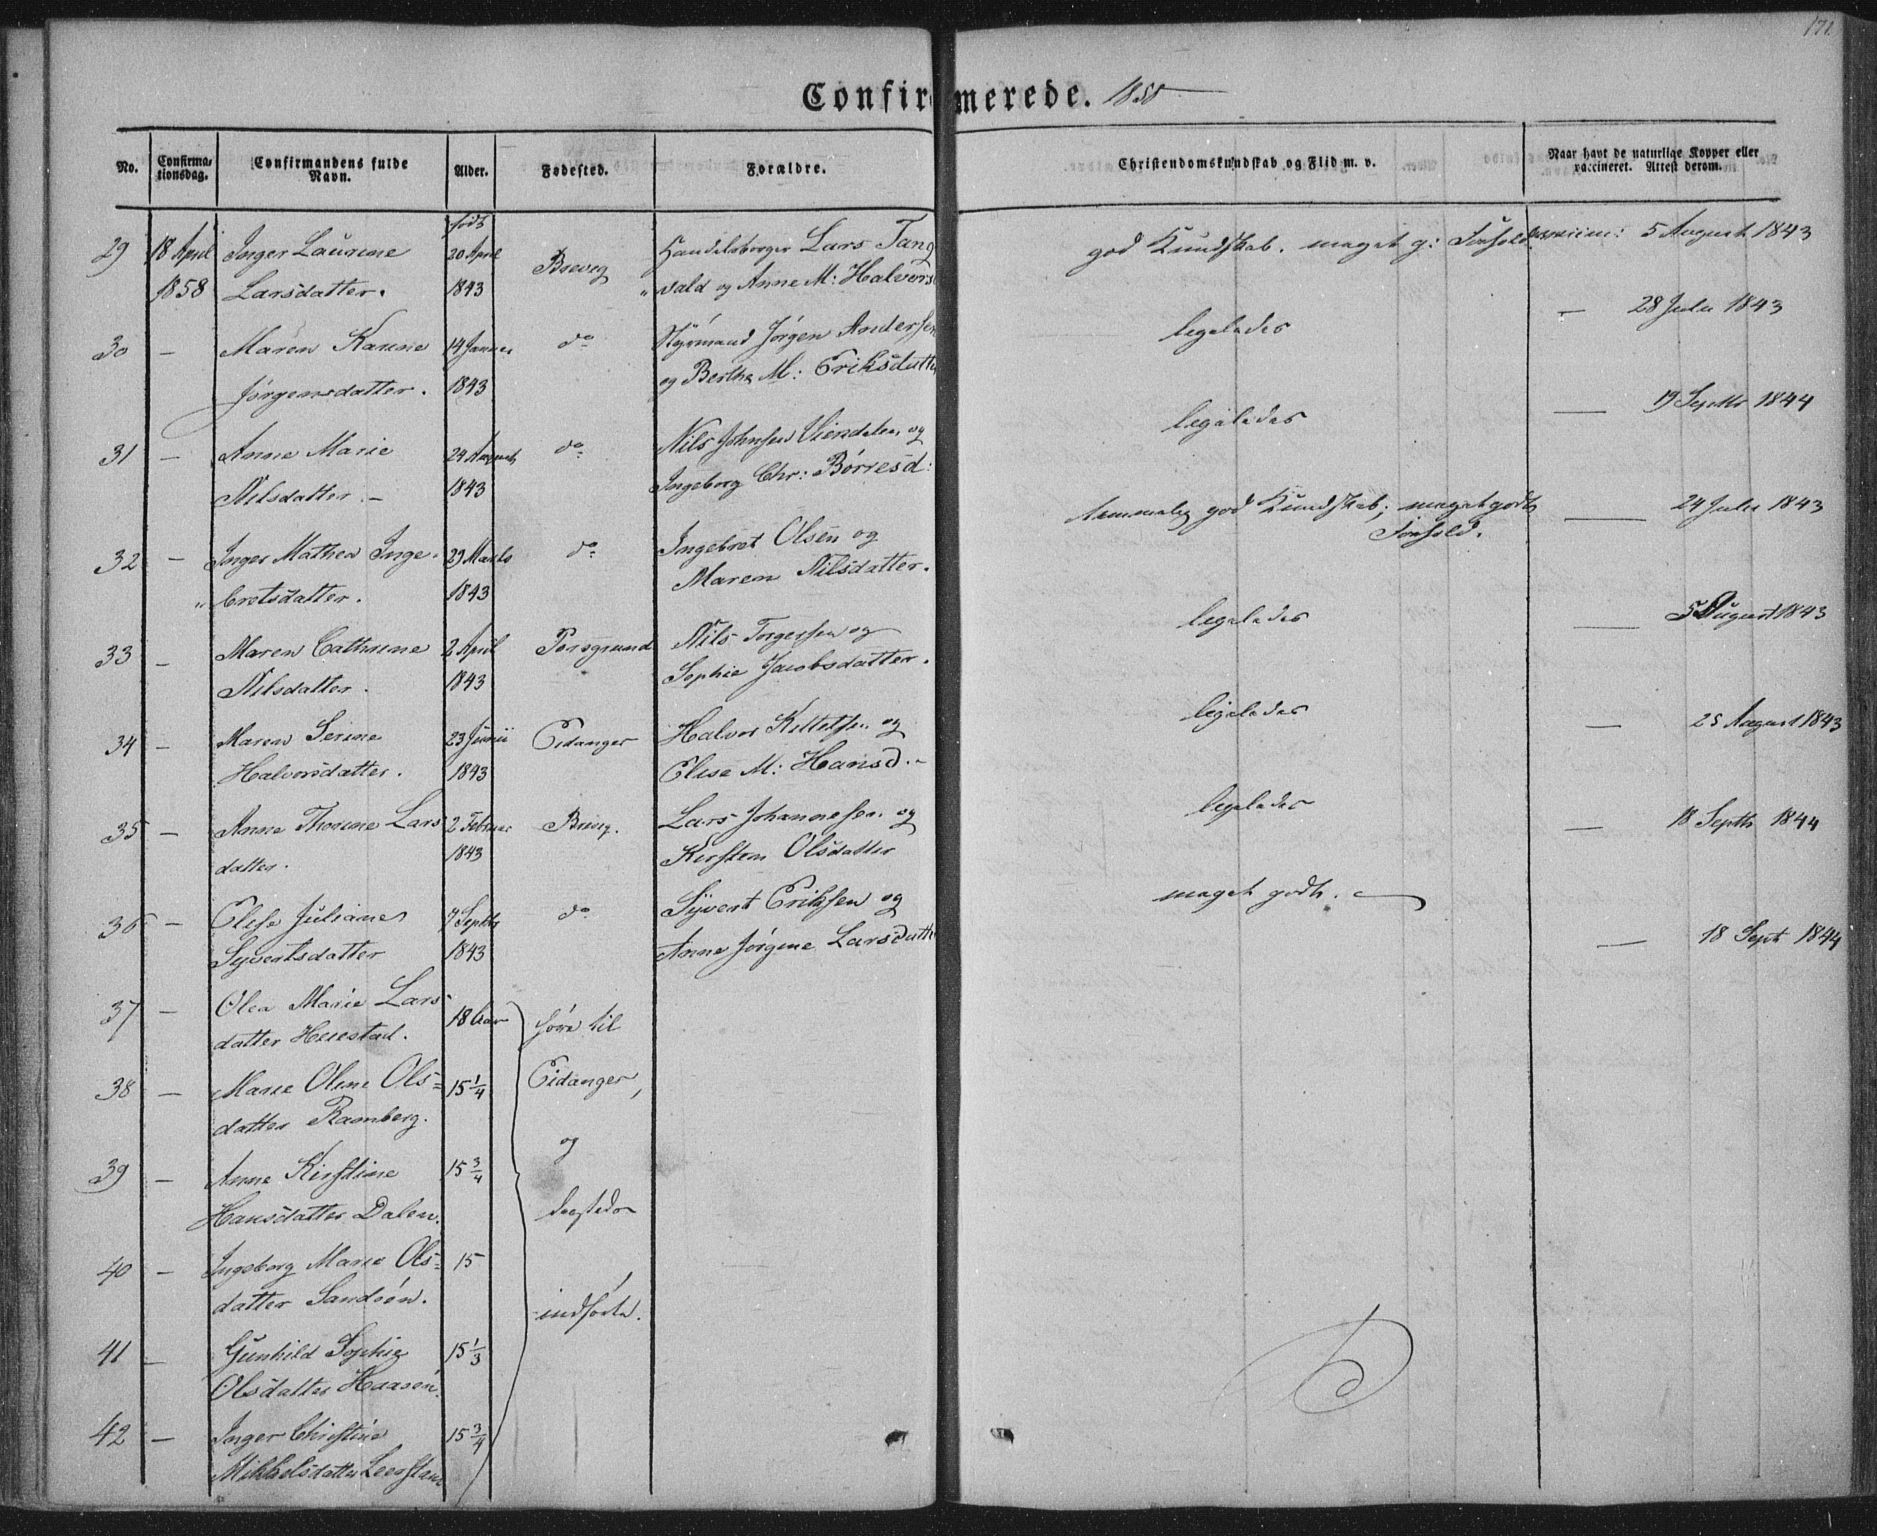 171.
Confirmerede. 1858
No. Confirma-tionsdag. Confirmandens fulde Navn. Alder. Fødested. Forældre. Christendomskundskab og Flid m. v. Naar havt de naturlige Kopper eller vaccineret. Attest derom.
født
29 18 April Inger Laurine 20 April Brevig Handelsborger Lars Tang god Kundskab. meget g: Forhold vaccine: 5 August 1843
1858 Larsdatter. 1843 "vald og Anne M: Halvors
30 — Maren Karine 14 Januar do Styrmand Jørgen Andersen ligeledes — 28 Julii 1843
Jørgensdatter. 1843 og Berthe M: Eriksdatter
31 — Anne Marie 24 August do Nils Johnsen og ligeledes — 19 Septbr 1844
Nilsdatter. — 1843 Ingeborg Chr: Børresd:
32 — Inger Mathea Inge- 29 Marts do Ingebret Olsen og temmelig god Kundskab; meget godt — 24 Julii 1843
"bretsdatter. 1843 Maren Nilsdatter. Forhold.
33 — Maren Cathrine 2 April Porsgrund Nils Torgersen og ligeledes — 5 August 1843
Nilsdatter. 1843 Sophie Jacobsdatter.
34 — Maren Serine 23 Junii Eidanger Halvor Kittelsen og ligeledes — 25 August 1843
Halvorsdatter. 1843 Elise M: Hansd. —
35 — Anne Thorine Lars 2 Februar Brevig. Lars Johannesen og ligeledes — 18 Septb 1844
datter. 1843 Kirsten Olsdatter
36 — Elise Juliane 7 Septbr do Syvert Eriksen og meget godt. — — 18 Sept 1844
Syvertsdatter 1843 Anne Jørgine Larsdatter
37 — Olea Marie Lars- 18 Aar høre til
datter Heiestad.
38 — Marie Oline Ols- 15 1/4 Eidanger,
datter Ramberg.
39 — Anne Kirstine 15 3/4 og
Hansdatter Dalen. dersteds
40 — Ingeborg Marie Ols- 15
datter Sandøen. indførte.
41 — Gunhild Sophie 15 1/3
Olsdatter Haasen.
42 — Inger Christine 15 3/4
Mikkelsdatter